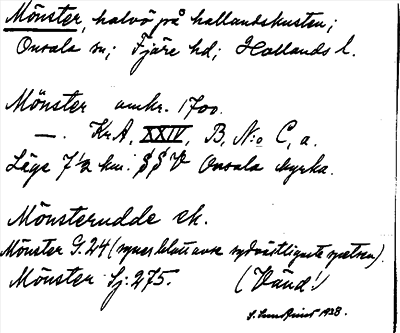 Mönster, halvö på hallandskusten;
Onsala sn; Fjäre hd; Hallands l.
Mönster omkr. 1700.
—. KrA, XXIV, B, N:o C, a.
Läge 7 ½ km. SSV Onsala kyrka.
Mönsterudde ek.
Mönster G. 24 (synes blott avse sydvästligaste spetsen).
Mönster Sj. 275. (Vänd!)
1938.